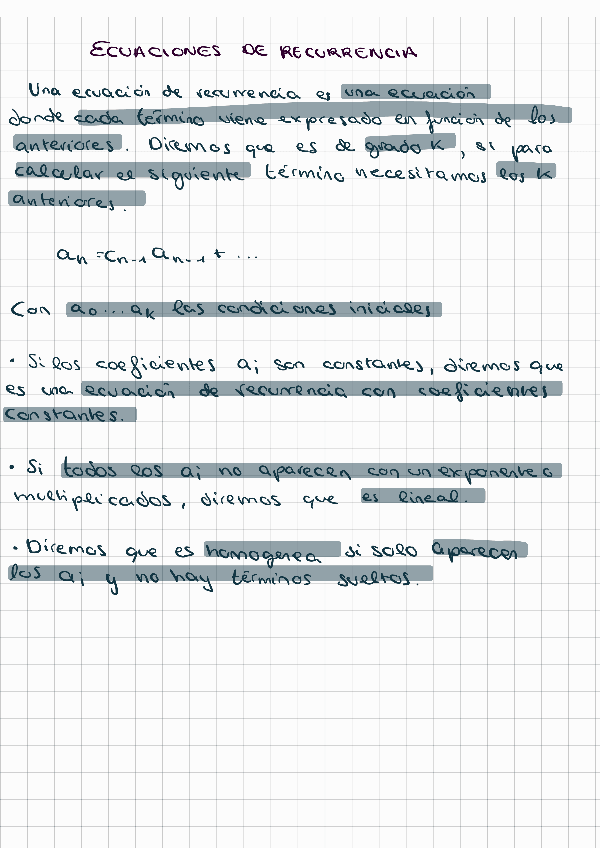 ECUACIONES DE RECURRENCIA
Una ecuación de recurrencia es una ecuación
donde cada término viene expresado en función de los
anteriores. Diremos que es de grado K, si para
calcular el siguiente término necesitamos los K
anteriores.
aₙ = cₙ₋₁ aₙ₋₁ + ...
Con a₀...aₖ las condiciones iniciales
· Si los coeficientes aᵢ son constantes, diremos que
es una ecuación de recurrencia con coeficientes
constantes.
· Si todos los aᵢ no aparecen con un exponente o
multiplicados, diremos que es lineal.
· Diremos que es homogenea si solo aparecen
los aᵢ y no hay términos sueltos.